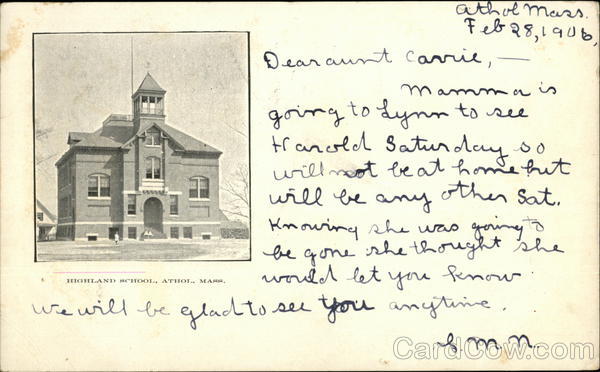 Athol Mass.
Feb 28, 1906,
Dear aunt Carrie, —
Mamma is
going to Lynn to see
Harold Saturday so
will not be at home but
will be any other Sat.
Knowing she was going to
be gone she thought she
would let you know.
we will be glad to see you anytime.
M. N.
HIGHLAND SCHOOL, ATHOL, MASS.
CardCow.com